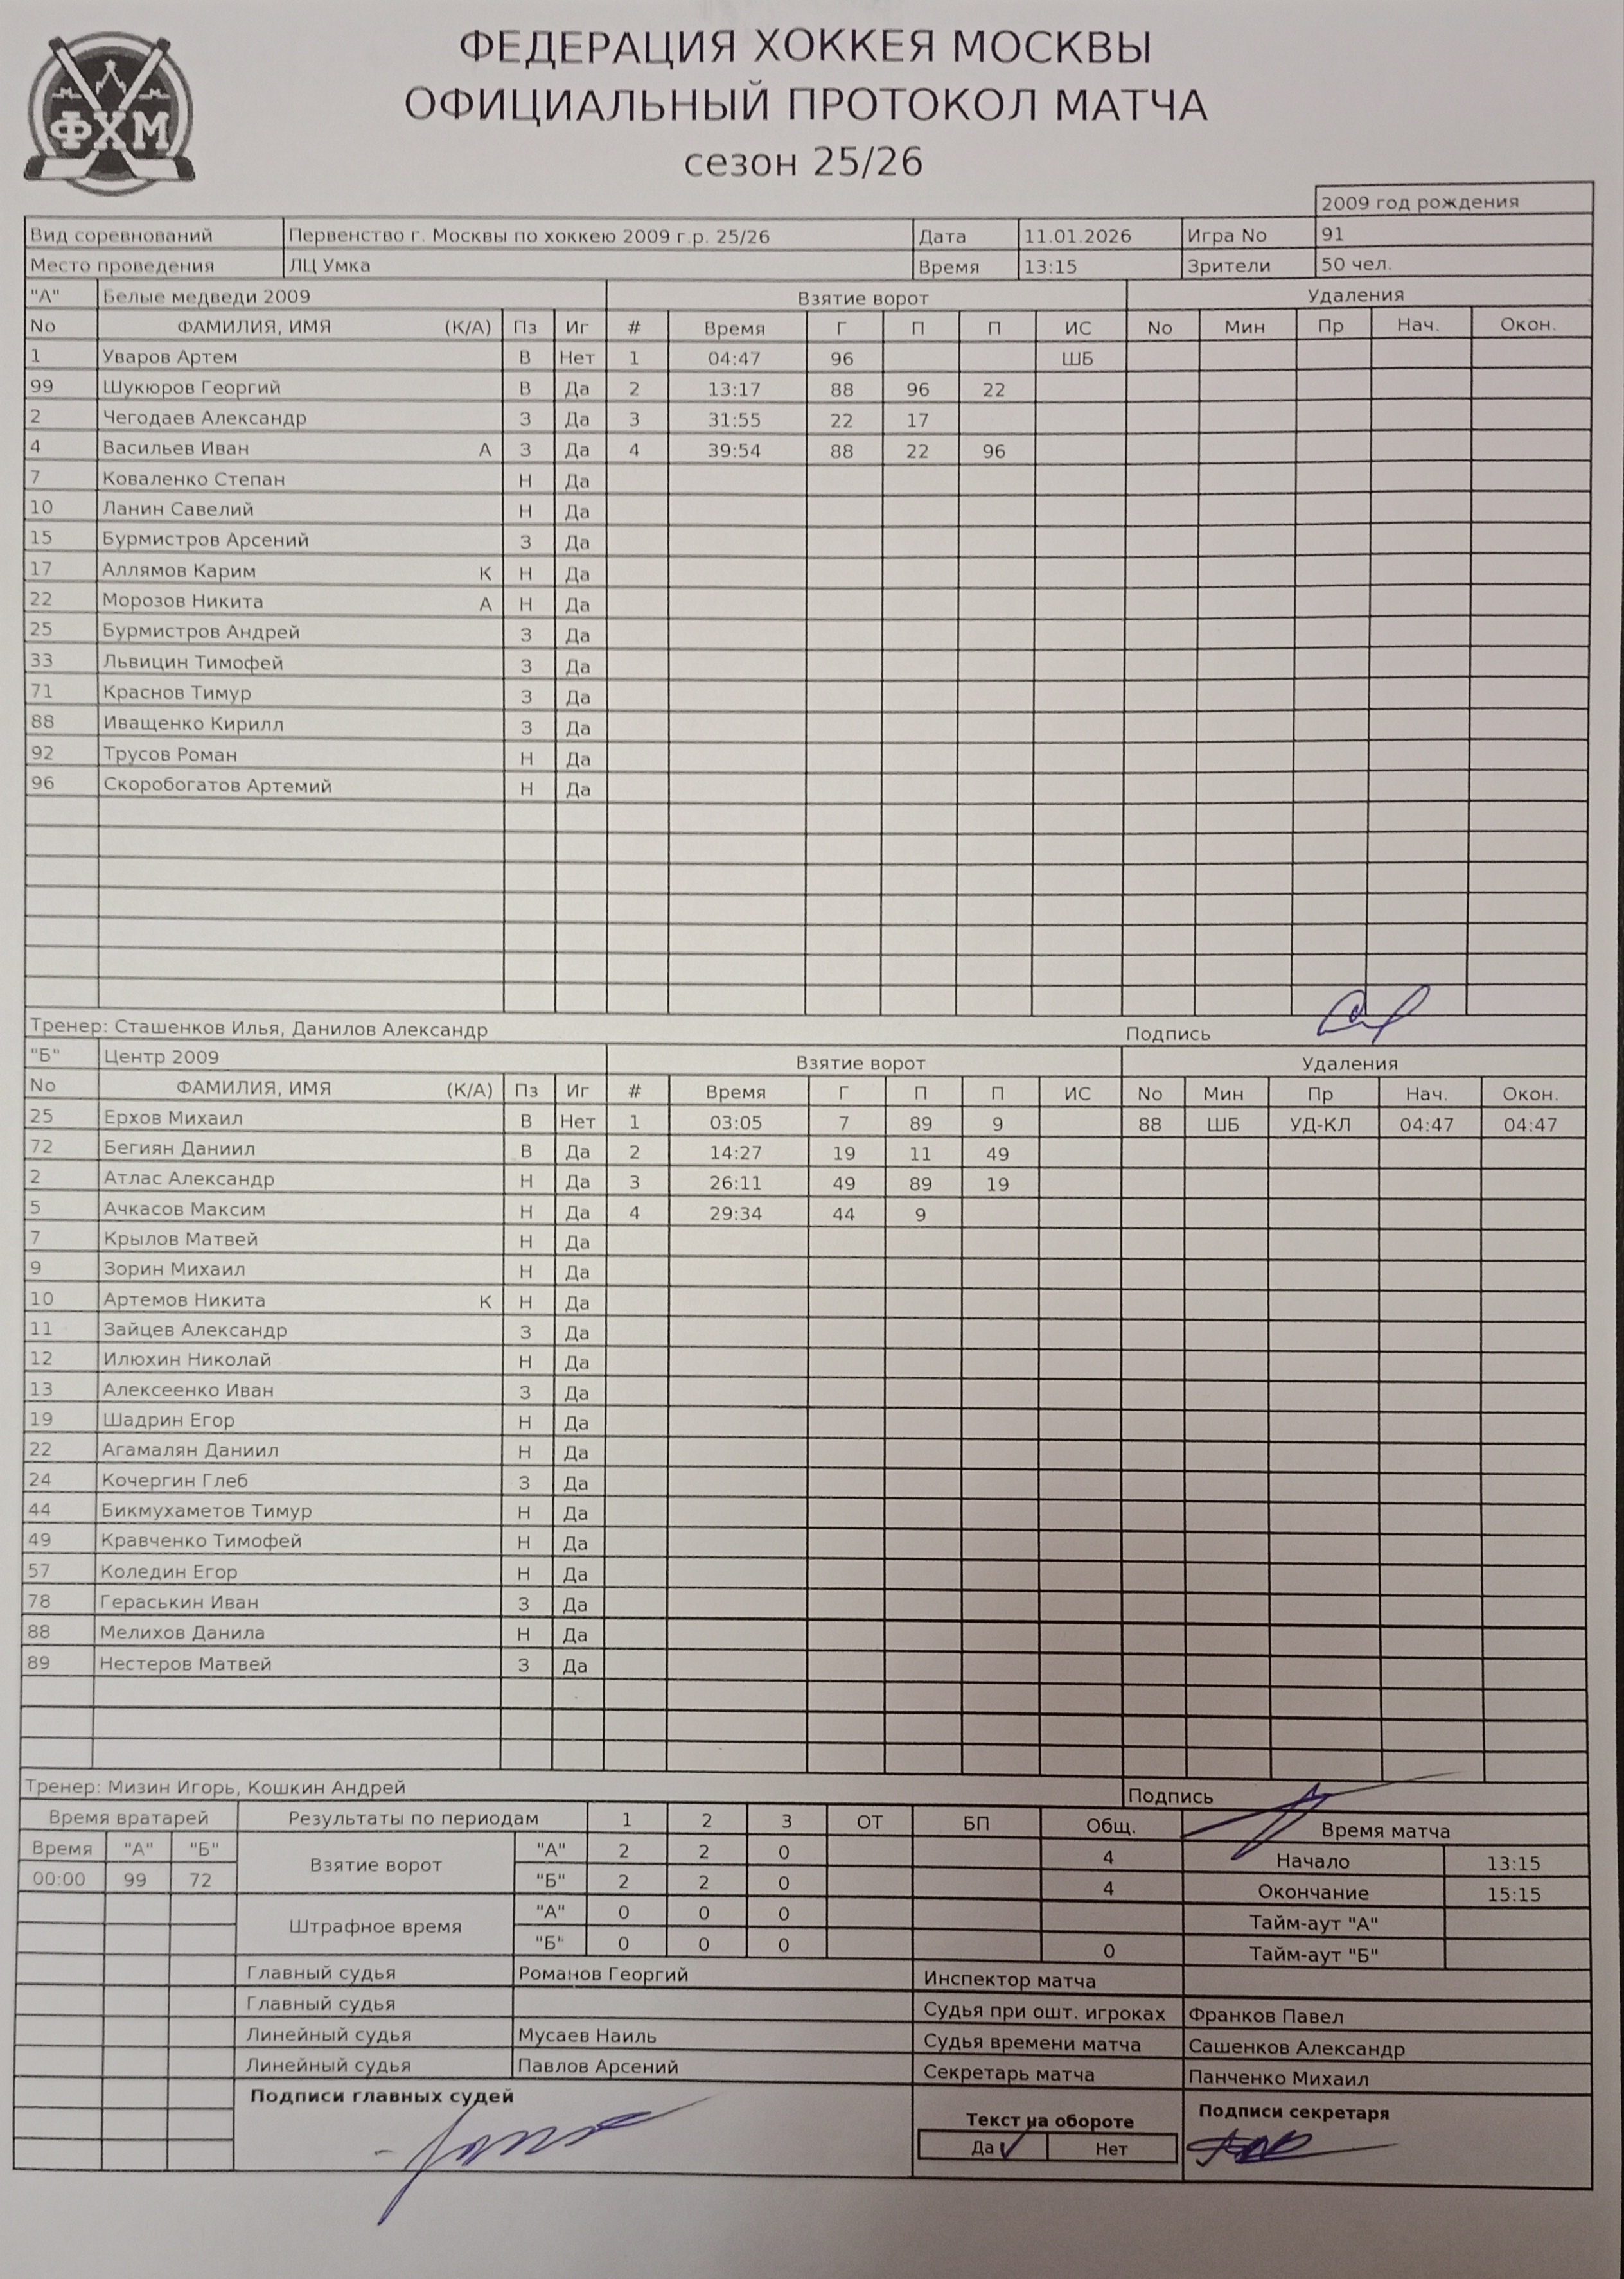 ФЕДЕРАЦИЯ ХОККЕЯ МОСКВЫ
ОФИЦИАЛЬНЫЙ ПРОТОКОЛ МАТЧА
сезон 25/26
ФХМ
2009 год рождения
Вид соревнований Первенство г. Москвы по хоккею 2009 г.р. 25/26 Дата 11.01.2026 Игра No 91
Место проведения ЛЦ Умка Время 13:15 Зрители 50 чел.
"А" Белые медведи 2009 Взятие ворот Удаления
No ФАМИЛИЯ, ИМЯ (К/А) Пз Иг # Время Г П П ИС No Мин Пр Нач. Окон.
1 Уваров Артем В Нет 1 04:47 96 ШБ
99 Шукюров Георгий В Да 2 13:17 88 96 22
2 Чегодаев Александр З Да 3 31:55 22 17
4 Васильев Иван А З Да 4 39:54 88 22 96
7 Коваленко Степан Н Да
10 Ланин Савелий Н Да
15 Бурмистров Арсений З Да
17 Аллямов Карим К Н Да
22 Морозов Никита А Н Да
25 Бурмистров Андрей З Да
33 Львицин Тимофей З Да
71 Краснов Тимур З Да
88 Иващенко Кирилл З Да
92 Трусов Роман Н Да
96 Скоробогатов Артемий Н Да
Тренер: Сташенков Илья, Данилов Александр Подпись
"Б" Центр 2009 Взятие ворот Удаления
No ФАМИЛИЯ, ИМЯ (К/А) Пз Иг # Время Г П П ИС No Мин Пр Нач. Окон.
25 Ерхов Михаил В Нет 1 03:05 7 89 9 88 ШБ УД-КЛ 04:47 04:47
72 Бегиян Даниил В Да 2 14:27 19 11 49
2 Атлас Александр Н Да 3 26:11 49 89 19
5 Ачкасов Максим Н Да 4 29:34 44 9
7 Крылов Матвей Н Да
9 Зорин Михаил Н Да
10 Артемов Никита К Н Да
11 Зайцев Александр З Да
12 Илюхин Николай Н Да
13 Алексеенко Иван З Да
19 Шадрин Егор Н Да
22 Агамалян Даниил Н Да
24 Кочергин Глеб З Да
44 Бикмухаметов Тимур Н Да
49 Кравченко Тимофей Н Да
57 Коледин Егор Н Да
78 Гераськин Иван З Да
88 Мелихов Данила Н Да
89 Нестеров Матвей З Да
Тренер: Мизин Игорь, Кошкин Андрей Подпись
Время вратарей Результаты по периодам 1 2 3 ОТ БП Общ. Время матча
Время "А" "Б" Взятие ворот "А" 2 2 0 4 Начало 13:15
00:00 99 72 "Б" 2 2 0 4 Окончание 15:15
Штрафное время "А" 0 0 0 Тайм-аут "А"
"Б" 0 0 0 0 Тайм-аут "Б"
Главный судья Романов Георгий Инспектор матча
Главный судья Судья при ошт. игроках Франков Павел
Линейный судья Мусаев Наиль Судья времени матча Сашенков Александр
Линейный судья Павлов Арсений Секретарь матча Панченко Михаил
Подписи главных судей Текст на обороте Подписи секретаря
Да Нет